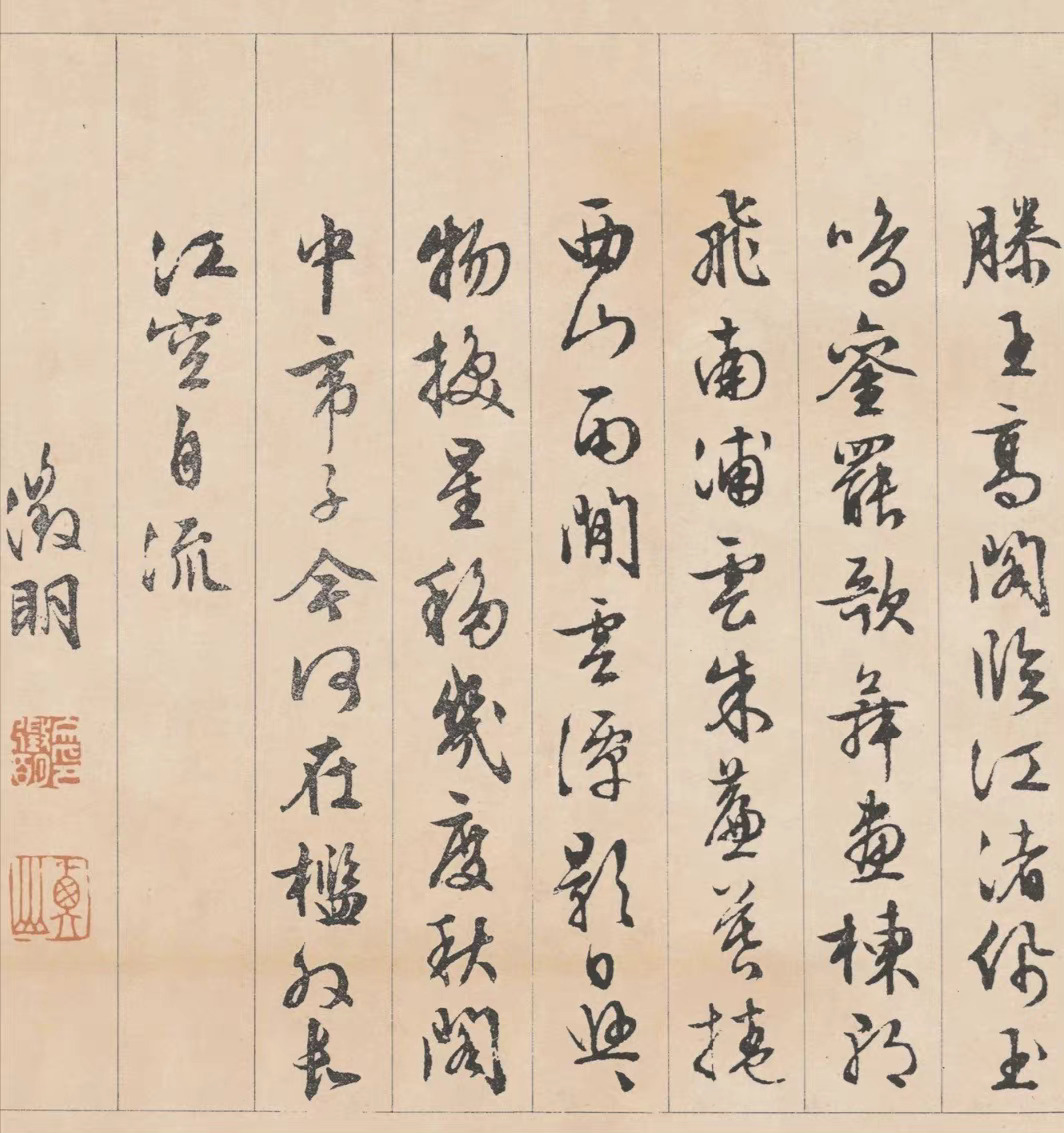 滕王高閣臨江渚佩玉
鳴鑾罷歌舞畫棟朝
飛南浦雲朱簾暮捲
西山雨閒雲潭影日悠〻
物換星移幾度秋閣
中帝子今何在檻外長
江空自流
徵明
衡山